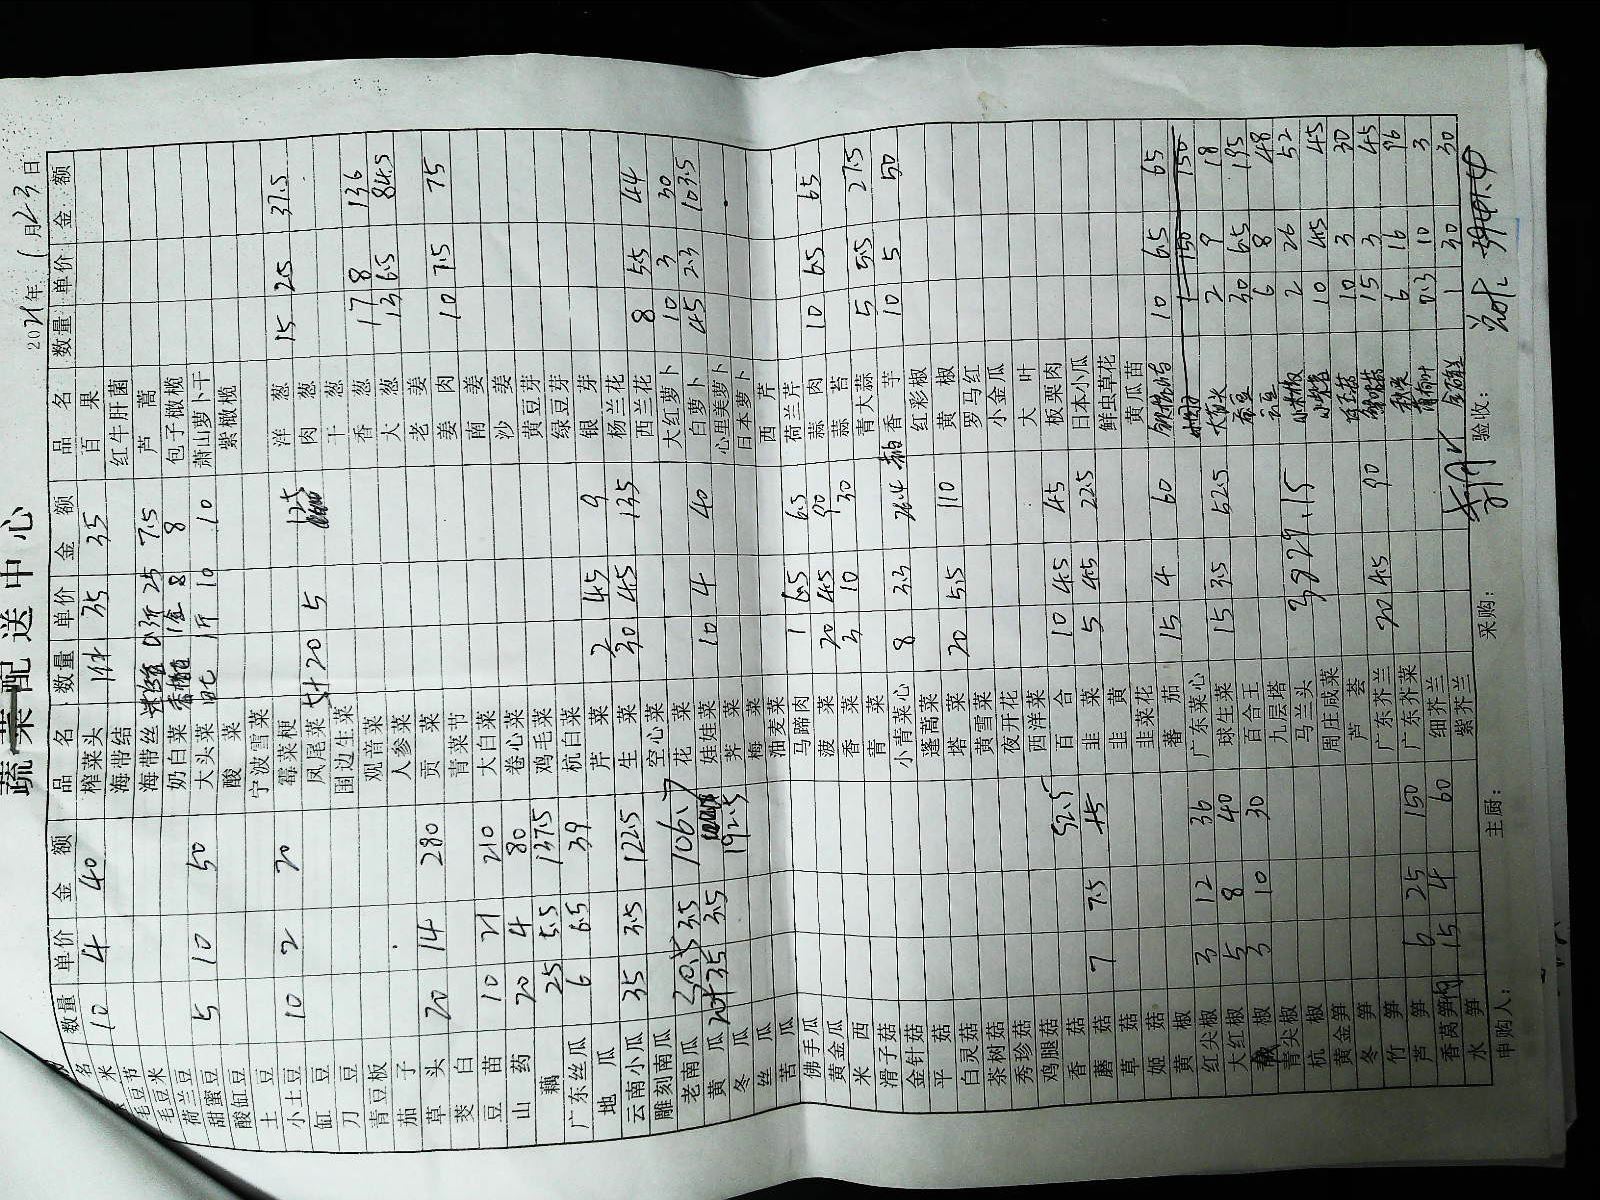 蔬菜配送中心
2021年1月23日
品名 数量 单价 金额 品名 数量 单价 金额 品名 数量 单价 金额
米 10 4 40 榨菜头 1件 35 35 百果
毛豆节 海带结 红牛肝菌
毛豆米 海带丝 0.3斤 25 7.5 芦蒿
荷兰豆 奶白菜 1盒 8 8 包子橄榄
甜蜜豆 5 10 50 大头菜 1斤 10 10 萧山萝卜干
酸缸豆 酸菜 紫橄榄
土豆 宁波雪菜
小土豆 10 2 20 霉菜梗 洋葱 15 2.5 37.5
缸豆 凤尾菜 5+20 5 125 肉葱
刀豆 围边生菜 干葱
青豆板 观音菜 香葱 17 8 136
茄子 人参菜 大葱 13 6.5 84.5
草头 20 14 280 贡菜 老姜
茭白 青菜节 姜肉 10 7.5 75
豆苗 10 21 210 大白菜 南姜
山药 20 4 80 卷心菜 沙姜
藕 25 5.5 137.5 鸡毛菜 黄豆芽
广东丝瓜 6 6.5 39 杭白菜 绿豆芽
地瓜 芹菜 2 4.5 9 银芽
云南小瓜 35 3.5 122.5 生菜 30 4.5 135 杨兰花
雕刻南瓜 空心菜 西兰花 8 5.5 44
老南瓜 30.5 3.5 106.7 花菜 大红萝卜 10 3 30
黄瓜 20+35 3.5 192.5 娃娃菜 10 4 40 白萝卜 45 2.3 103.5
冬瓜 荠菜 心里美萝卜
丝瓜 梅菜 日本萝卜
苦瓜 油麦菜 西芹
佛手瓜 马蹄肉 1 6.5 6.5 荷兰芹
黄金瓜 菠菜 20 4.5 90 蒜肉 10 6.5 65
米西 香菜 3 10 30 蒜苔
滑子菇 青菜 青大蒜 5 5.5 27.5
金针菇 小青菜心 8 3.3 26.4 香芋 10 5 50
平菇 蓬蒿菜 红彩椒
白灵菇 塔菜 20 5.5 110 黄椒
茶树菇 黄雪菜 罗马红
秀珍菇 夜开花 小金瓜
鸡腿菇 西洋菜 大叶
香菇 52.5 百合 10 4.5 45 板栗肉
蘑菇 7 7.5 45 韭菜 5 4.5 22.5 日本小瓜
草菇 韭黄 鲜虫草花
姬菇 韭菜花 黄瓜苗
黄椒 蕃茄 15 4 60 10 6.5 65
红尖椒 3 12 36 广东菜心 1 150 150
大红椒 5 8 40 球生菜 15 3.5 52.5 2 9 18
椒 3 10 30 百合王 30 6.5 195
青尖椒 九层塔 6 8 48
杭椒 马兰头 2 26 52
黄金笋 周庄咸菜 10 4.5 45
冬笋 芦荟 10 3 30
竹笋 广东芥兰 20 4.5 90 15 3 45
芦笋 6 25 150 广东芥菜 6 16 96
香莴笋 15 4 60 细芥兰 0.3 10 3
水笋 紫芥兰 1 30 30
3829.15
申购人： 主厨： 采购： 验收：